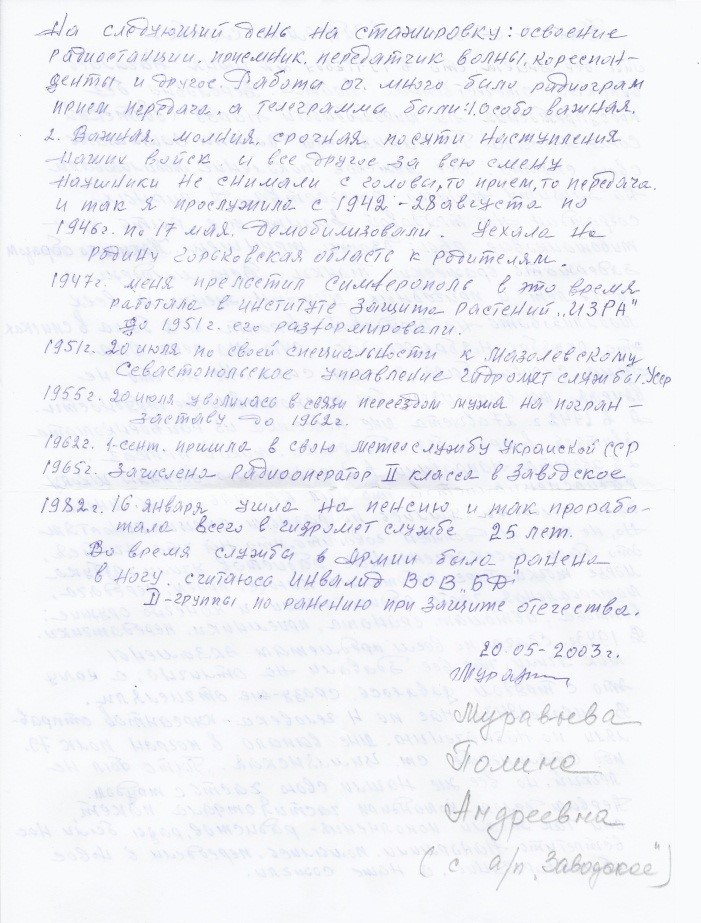 На следующий день на стажировку: освоение
радиостанции. приемник. передатчик волны. кореспон-
денты и другое. Работы оч. много было радиограм
прием. передача, а телеграммы были: 1. особо важная.
2. Важная. молния. срочная. посути наступления
наших войск. и все другое за всю смену
наушники не снимали с головы, то прием, то передача.
и так я прослужила с 1942 - 28 августа по
1946г. по 17 мая. демобилизовали. Уехала на
родину Горьковская область к родителям.
1947г. меня Симферополь в это время
работала в институте Защита растений "ИЗРА"
до 1951г. его разформировали.
1951г. 20 июля по своей специальности к Мазолевскому
Севастопольское Управление Гидромет службы Усср
1955г. 20 июля уволилась в связи переездом мужа на погран-
заставу до 1962г.
1962г. 1-сент. пришла в свою метеослужбу Украиской ССР
1965г. Зачислена Радиооператор II класса в Заводское
1982г. 16 января ушла на пенсию и так прорабо-
тала всего в гидромет службе 25 лет.
Во время службы в Армии была ранена
в ногу. считаюсь инвалид ВоВ "БД"
II-группы по ранению при Защите отечества.
20-05-2003г.
Муравьева
Полина
Андреевна
(с а/п "Заводское")